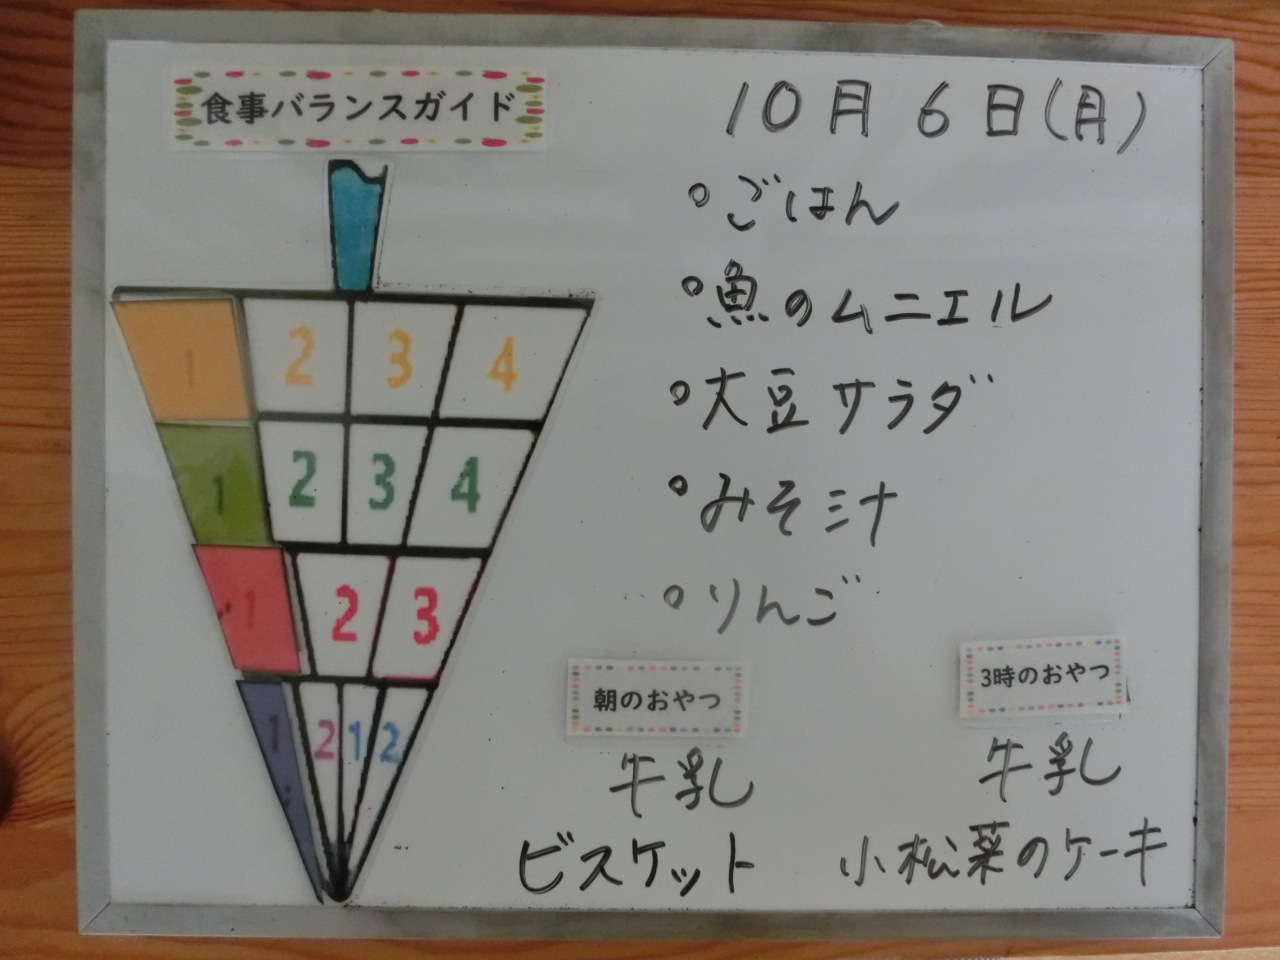 食事バランスガイド
10月6日(月)
ごはん
魚のムニエル
大豆サラダ
みそ汁
りんご
1 2 3 4
1 2 3 4
1 2 3
1 2 1 2
朝のおやつ
牛乳
ビスケット
3時のおやつ
牛乳
小松菜のケーキ